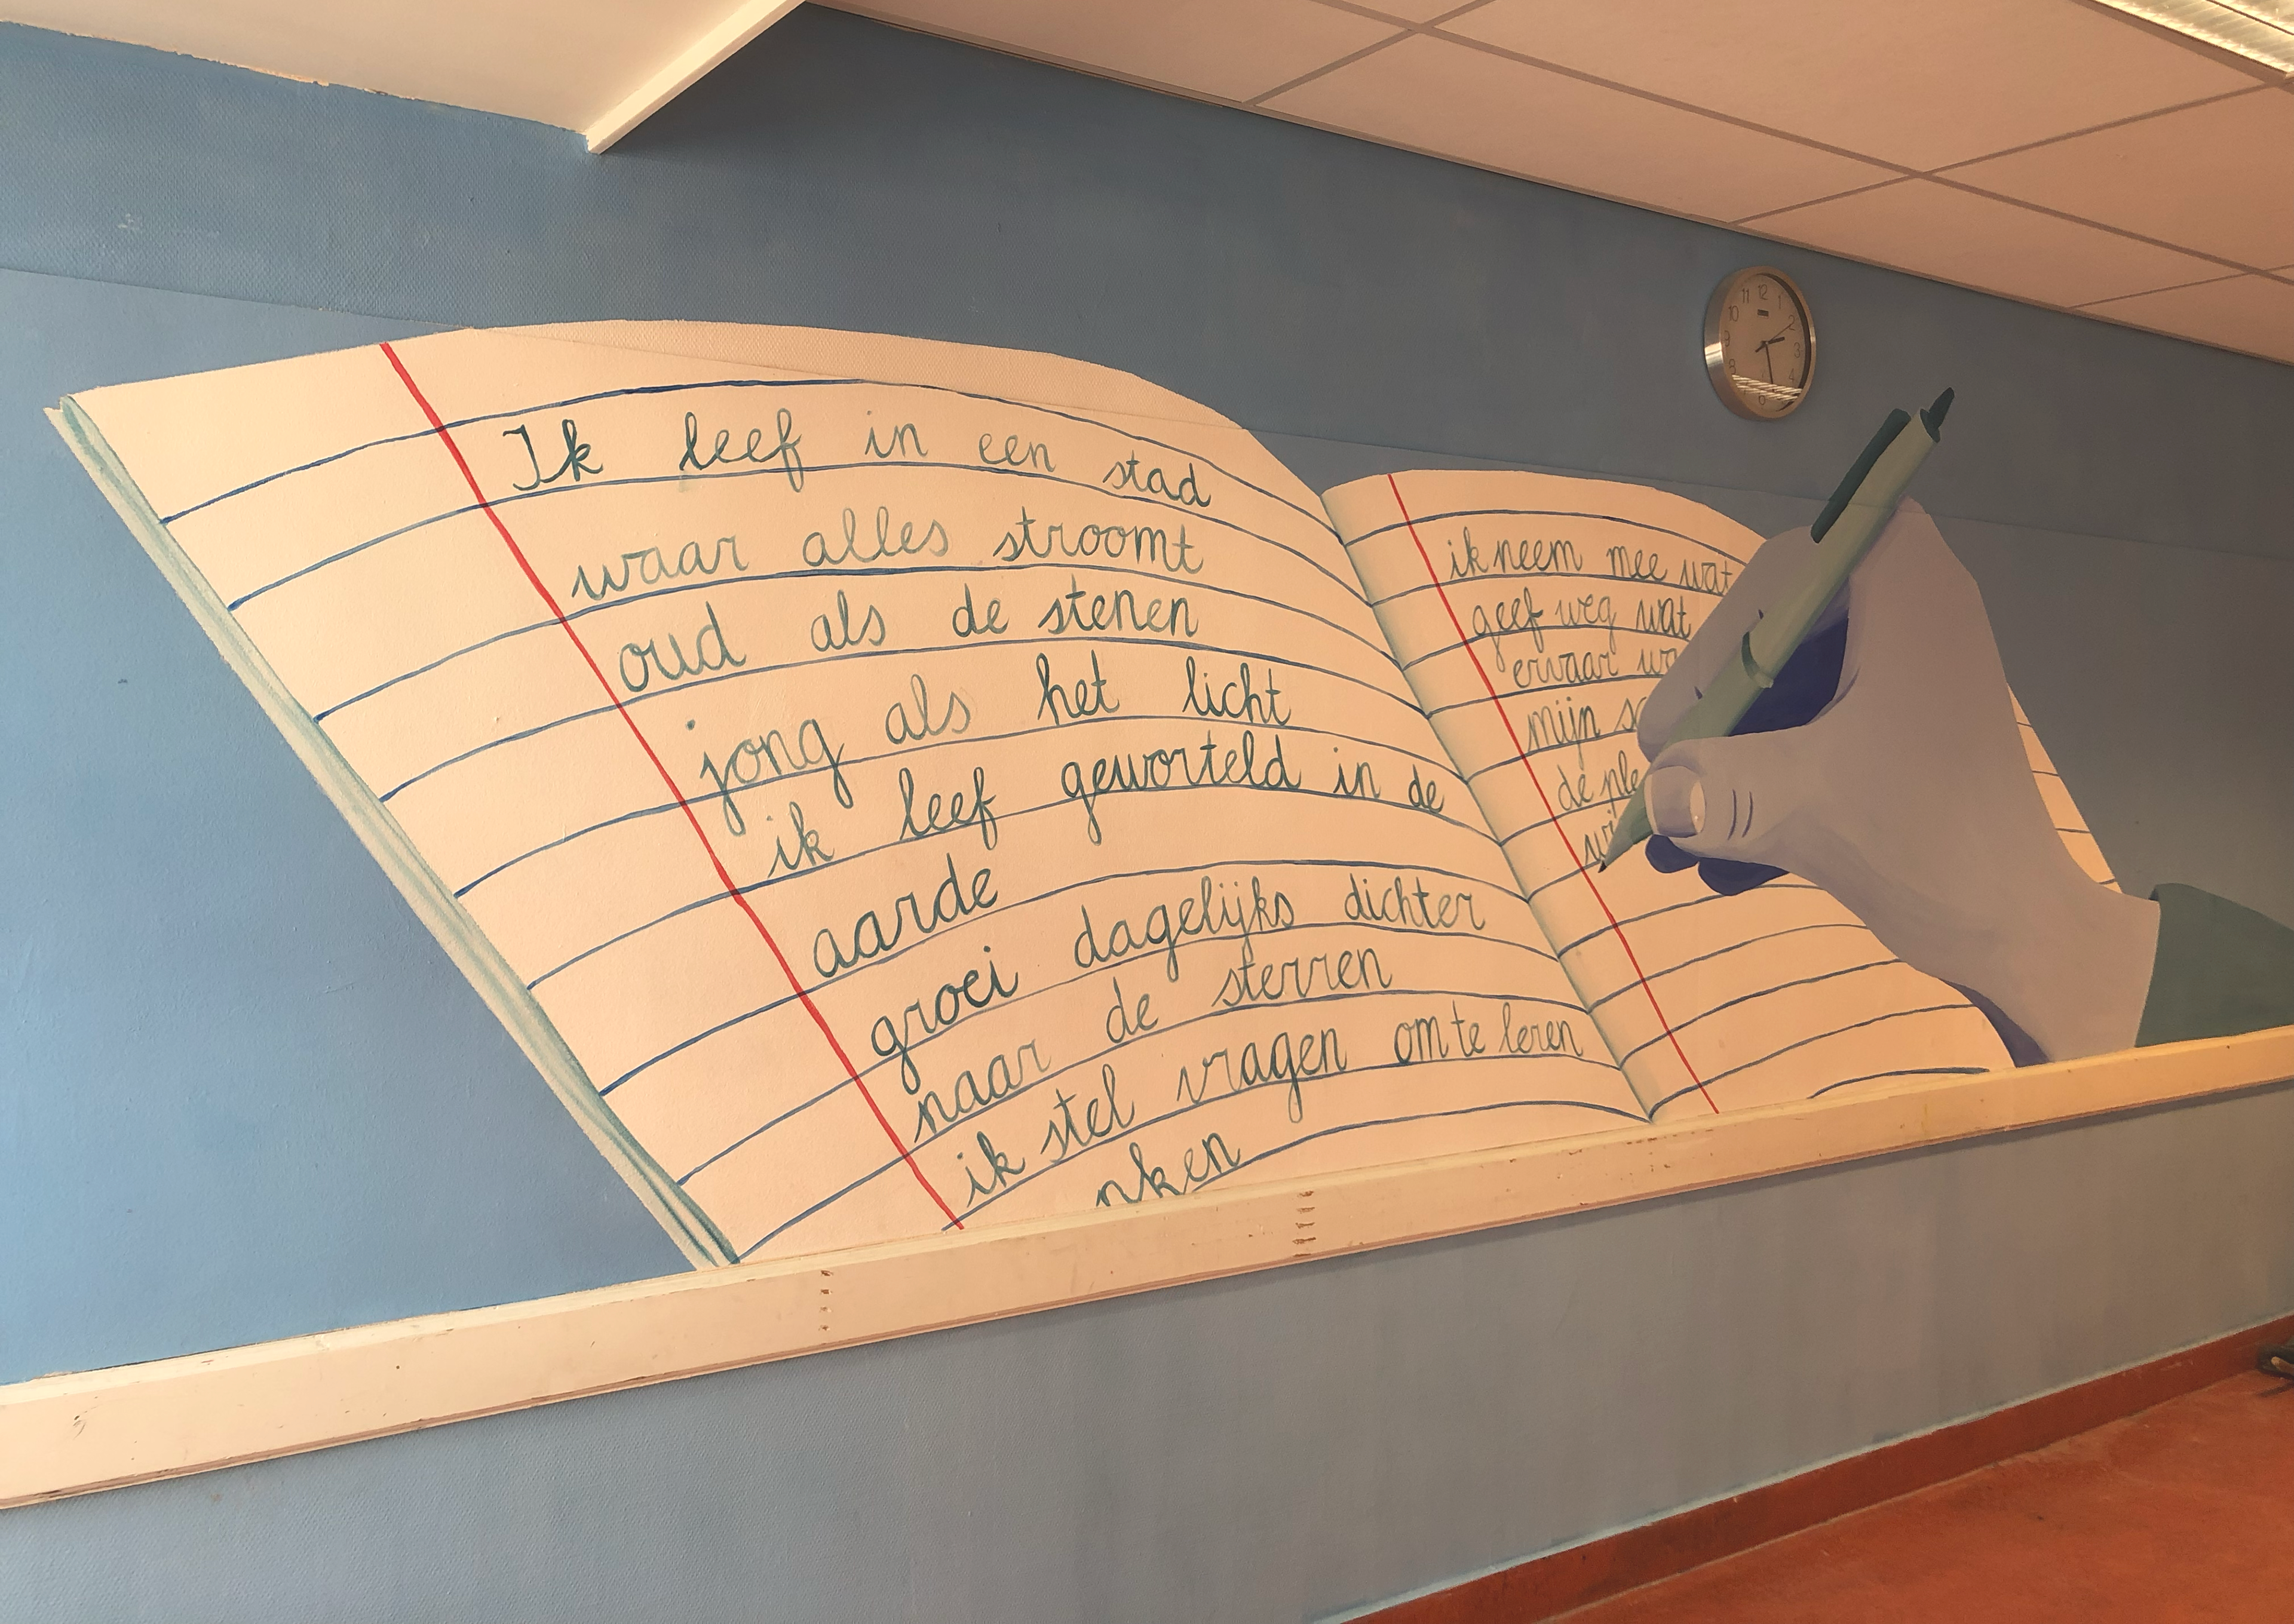 Ik leef in een stad
waar alles stroomt
oud als de stenen
jong als het licht
ik leef geworteld in de
aarde
groei dagelijks dichter
naar de sterren
ik stel vragen om te leren
nken
ik neem mee wat
geef weg wat
ervaar
mijn
de